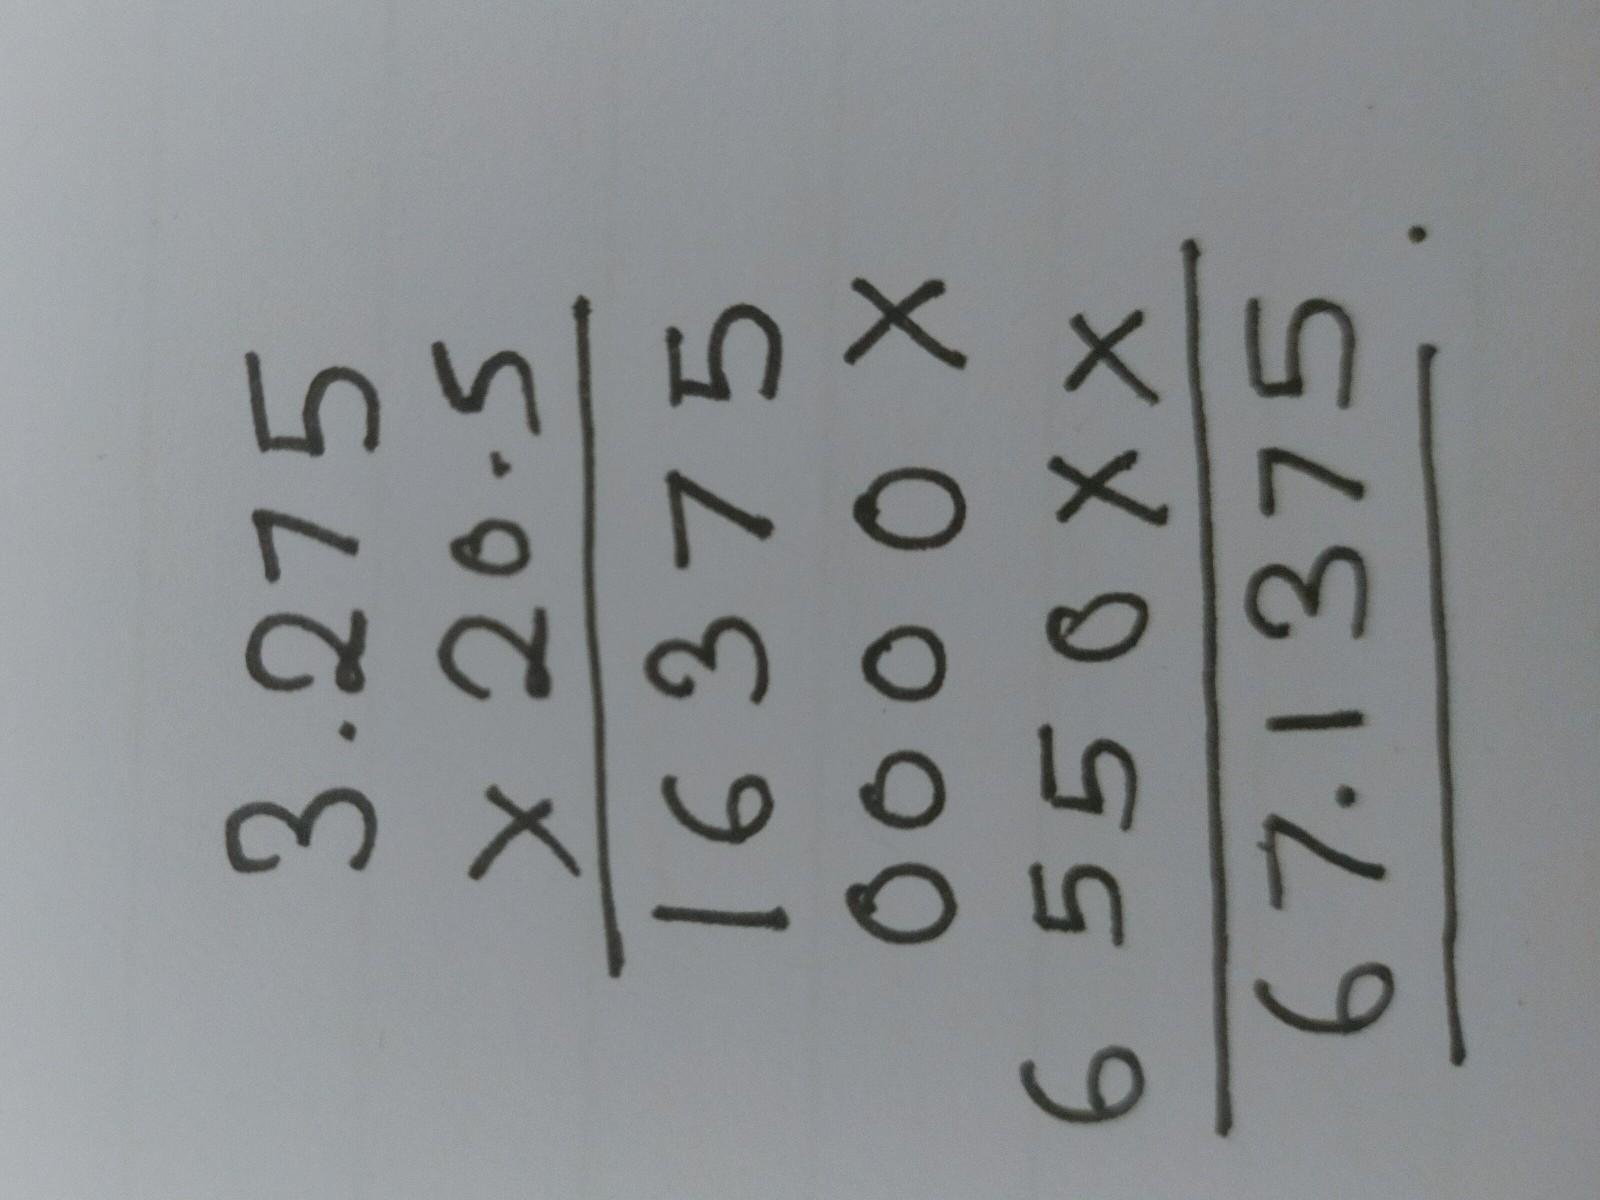 3.275
x 20.5
16375
0000x
6550xx
67.1375